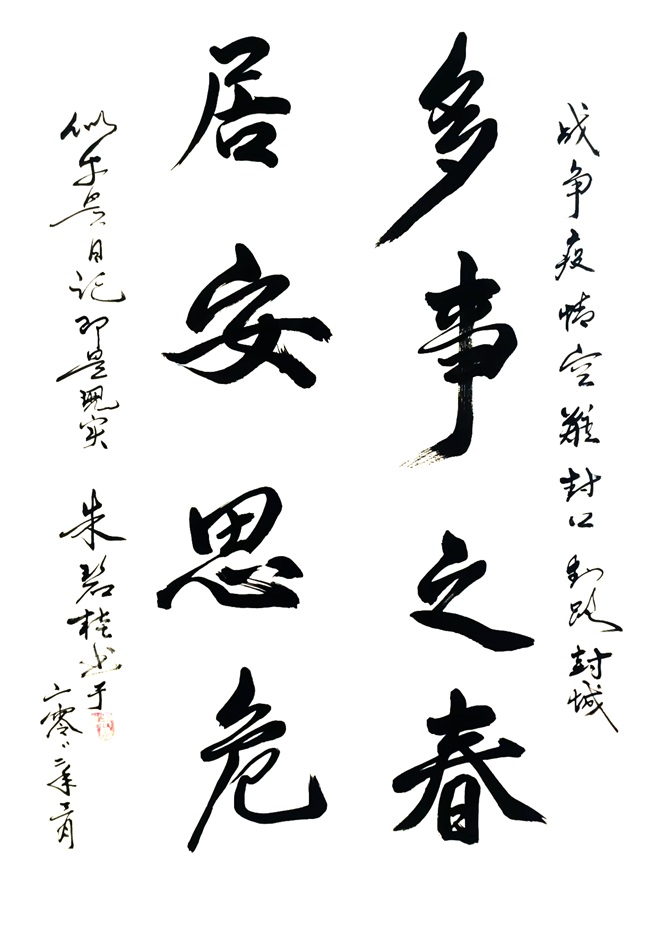 战争疫情空难封口封路封城
多事之春
居安思危
似书景日记即是现实
朱碧桂书于
二零二二年三月